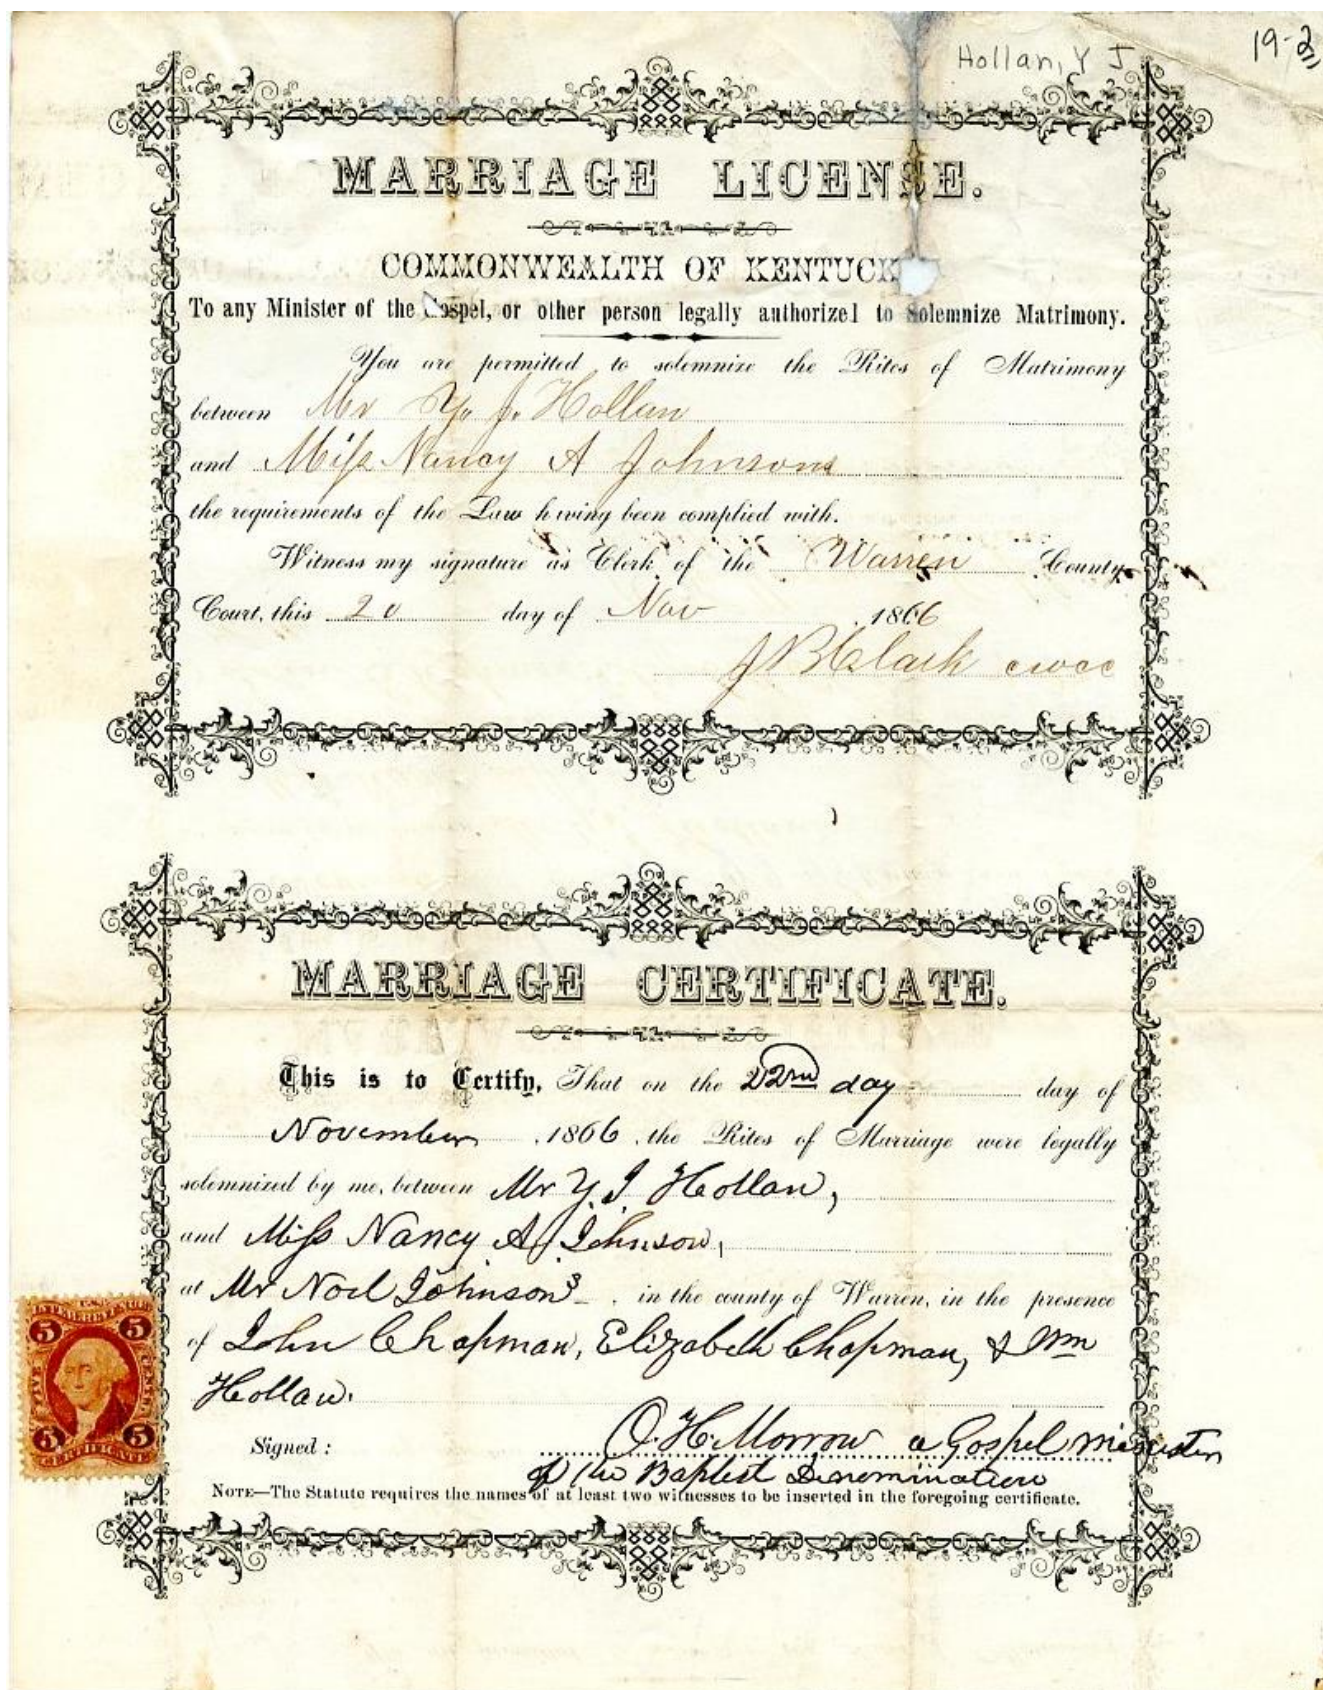 Hollan, Y J
19-2
MARRIAGE LICENSE.
COMMONWEALTH OF KENTUCK
To any Minister of the Gospel, or other person legally authorized to Solemnize Matrimony.
You are permitted to solemnize the Rites of Matrimony
between Mr Y. J. Hollan
and Miss Nancy A Johnsons
the requirements of the Law having been complied with.
Witness my signature as Clerk of the Warren County
Court, this 20 day of Nov 1866
J B Clark cwcc
MARRIAGE CERTIFICATE.
This is to Certify, That on the 22nd day day of
November 1866, the Rites of Marriage were legally
solemnized by me, between Mr Y. J. Hollan,
and Miss Nancy A. Johnson,
at Mr Noel Johnson's, in the county of Warren, in the presence
of John Chapman, Elizabeth Chapman, & Wm
Hollan.
Signed: O. H. Morrow a Gospel minister
of the Baptist Denomination
NOTE—The Statute requires the names of at least two witnesses to be inserted in the foregoing certificate.
U.S.
INTER. REVENUE
5 5
FIVE CENTS
5 5
CERTIFICATE